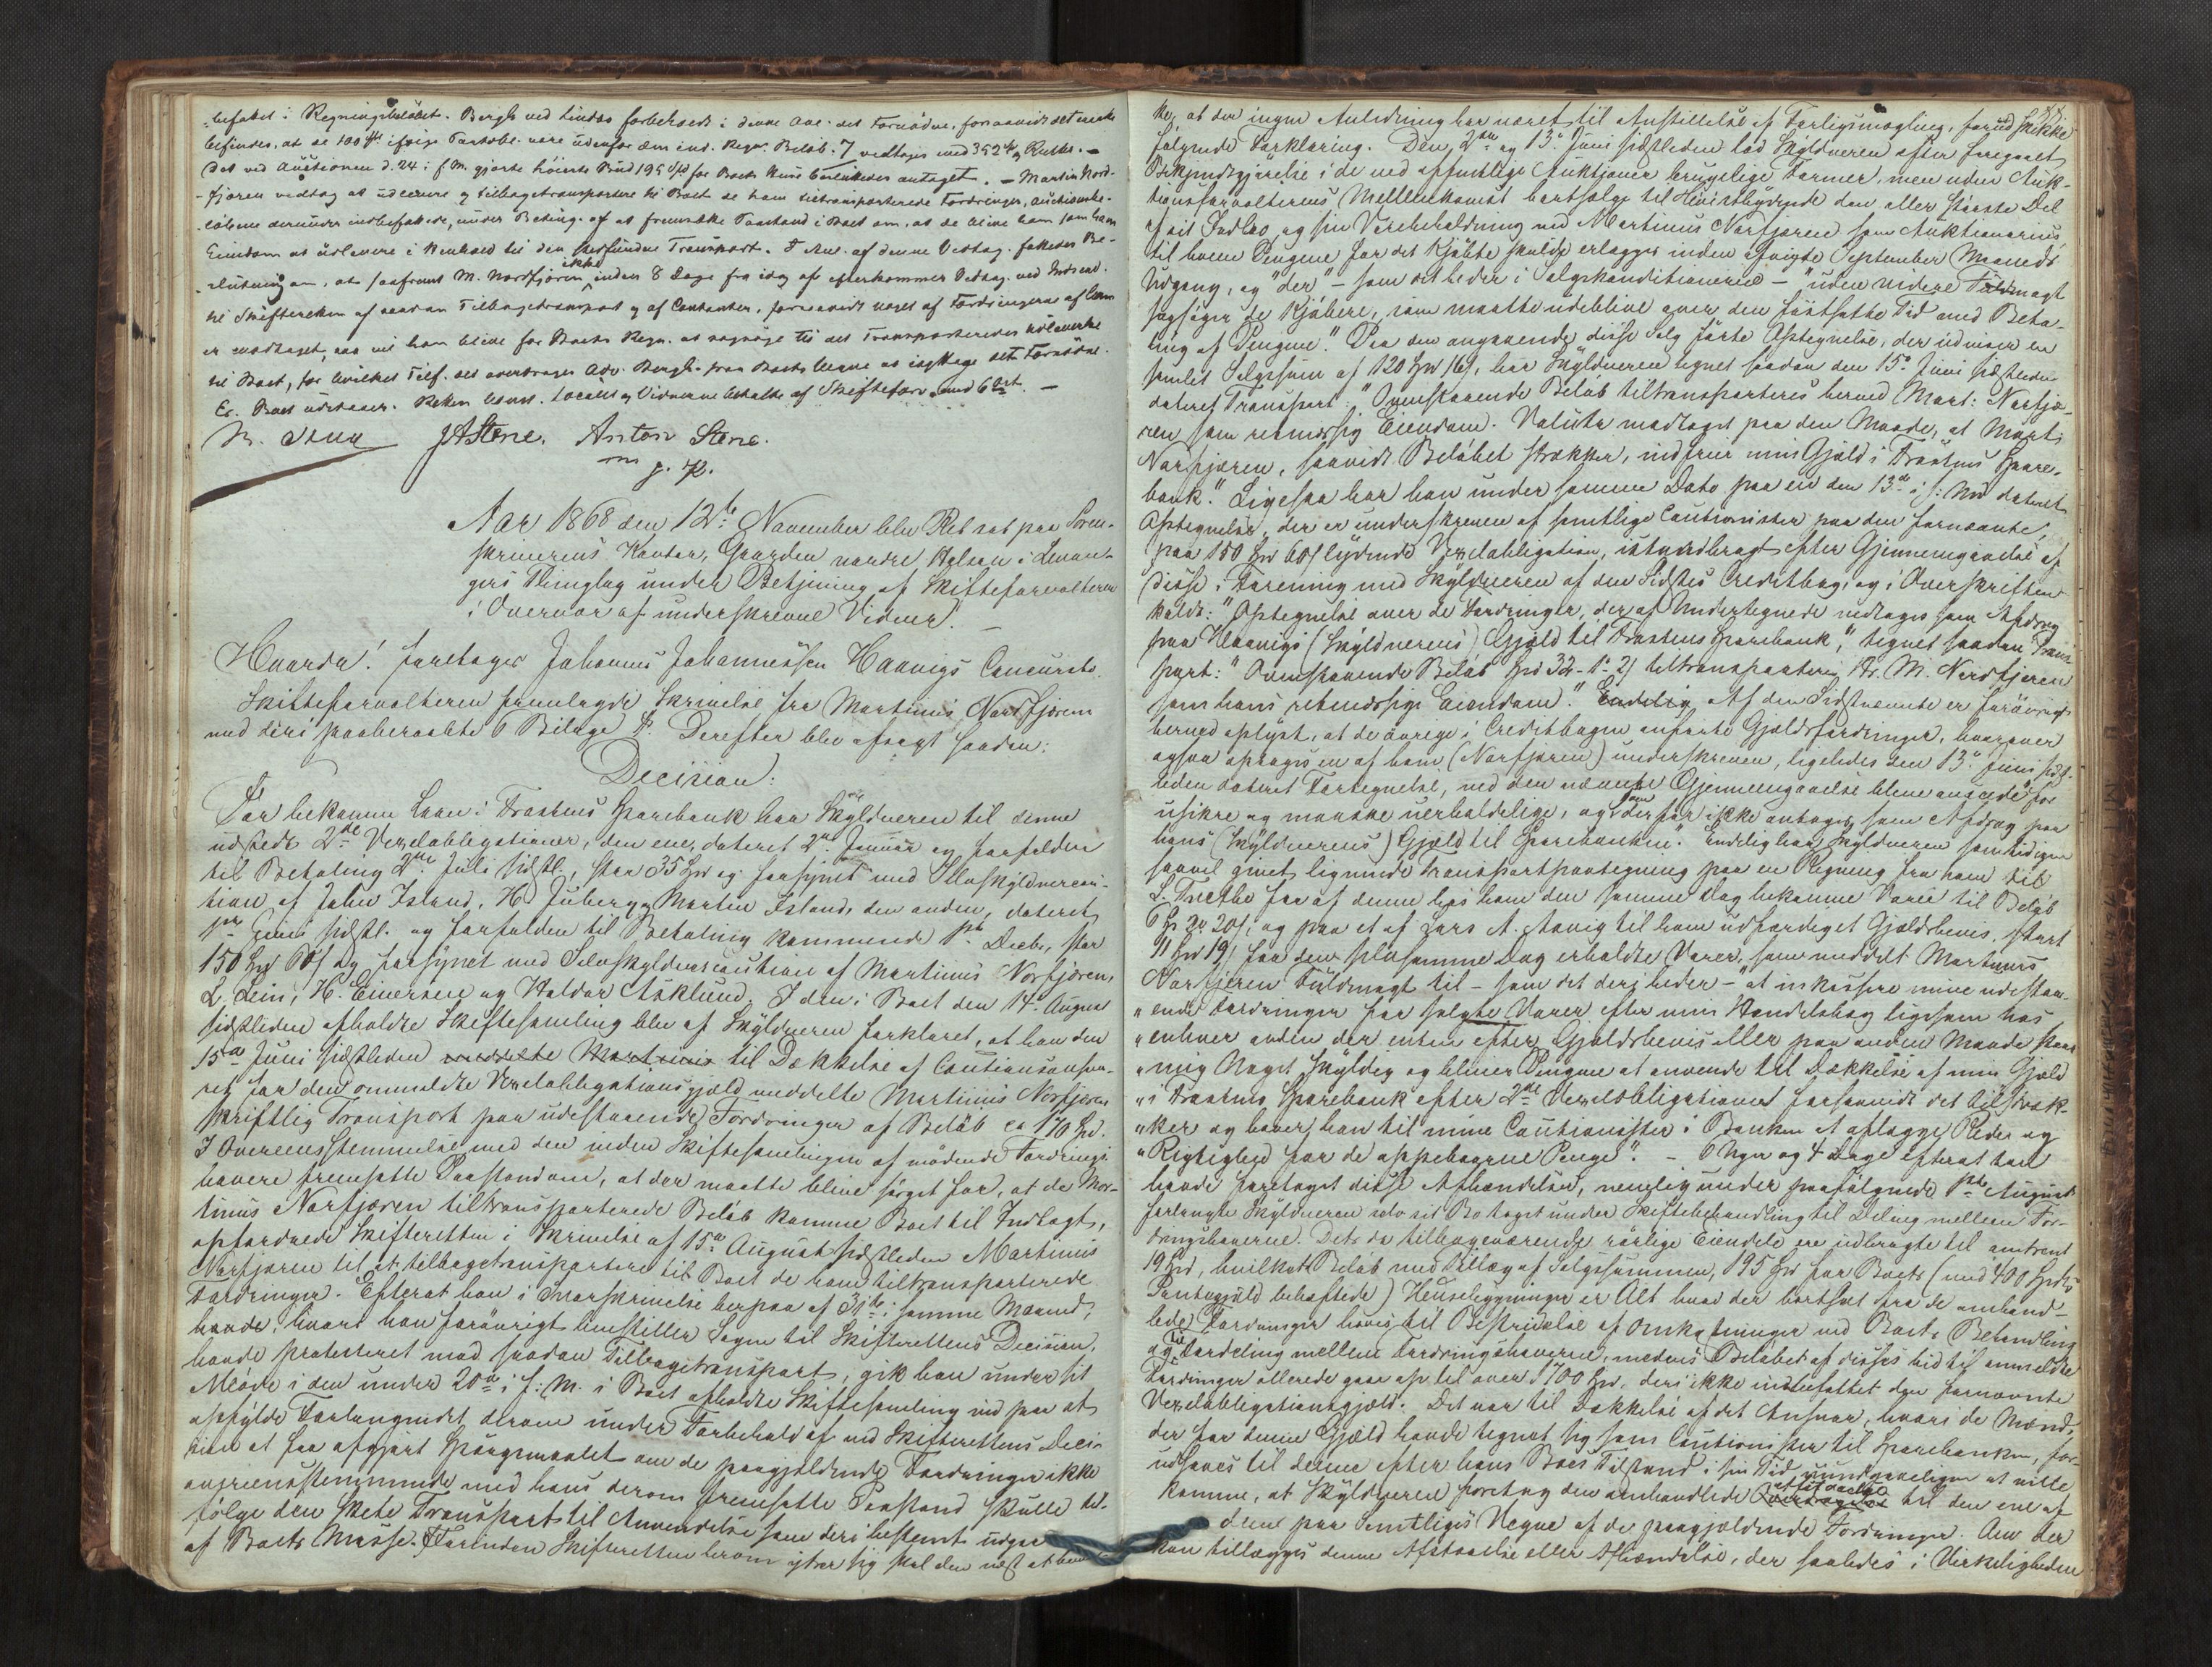 befattet i Regningsbeløbet. Bergh ved Lindås forbeholdt i denne Anl. det Fornødne, forsaavidt det maatte
befindes, at de 100 Spd ifølge Pantobl. vare udenfor den ind. Regn. Beløb. 7 vedtoges med 352 Spd og Renter. —
Det ved Auctionen d. 24 i f. M. gjorte høieste Bud 195 Spd for Boets Huus besluttedes antaget. — Martin Nord-
fjæren vedtog at udlevere og tilbagetransportere til Boet de ham tiltransporterede Fordringer, Auctionsbe-
løbene derunder indbefattede, under Beting. af at fremsætte Paastand i Boet om, at de blive ham som hans
Eiendom at udlevere i Henhold til den stedfundne Transport. I Anl. af denne Vedtag. fattedes Be-
slutning om, at saafremt M. Nordfjæren ikke inden 8 Dage fra idag af efterkommer Vedtag. ved Indsend.
til Skifteretten af saadan Tilbagetransport og af Contanter, forsaavidt noget af Fordringerne af ham
er modtaget, saa vil han blive for Boets Regn. at sagsøge til det Transporteredes Udleverelse
til Boet, for hvilket Tilf. det overdroges Adv. Bergh paa Boets Vegne at iagttage det Fornødne.
Er. Boet udstaaer. Retten hævet. Localet og Vidnerne betalte af Skifteforv. med 6 Ort. —
M. JAStene. Anton Stene.
m. f. P.
Aar 1868 den 12te November blev Ret sat paa Soren-
skriverens Kontor, Gaarden nordre Halsan i Levan-
gers Thinglag under Betjening af Skifteforvalteren
i Overvær af underskrevne Vidner. —
Hvorda! foretoges Johannes Johannessen Haavigs Concursbo.
Skifteforvalteren fremlagde Skrivelse fra Martinus Norfjæren
med deri paaberaabte 6 Bilage. Derefter blev afsagt saadan:
Decision:
For bekomne Laan i Frostens Sparebank har Skyldneren til denne
udstedt 2de Vexelobligationer, den ene, dateret 2den Januar og forfalden
til Betaling 2den Juli sidstl., stor 35 Spd og forsynet med Selvskyldnercau-
tion af John Island, H. Juberg og Morten Island, den anden, dateret
1ste Juni sidstl. og forfalden til Betaling kommende 1ste Decbr., stor
150 Spd 60 s og forsynet med Selvskyldnercaution af Martinus Norfjæren,
L. Lein, H. Einersen og Haldor Asklund. I den i Boet den 14de August
sidstleden afholdte Skiftesamling blev af Skyldneren forklaret, at han den
15de Juni sidstleden meddelte Martinus til Dækkelse af Cautionsansva-
ret for den ommeldte Vexelobligationsgjæld meddelte Martinus Norfjæren
skriftlig Transport paa udestaaende Fordringer af Beløb ca 170 Spd.
I Overeensstemmelse med den under Skiftesamlingen af mødende Fordrings-
havere fremsatte Paastand om, at der maatte blive sørget for, at de Mar-
tinus Norfjæren tiltransporterede Beløb komme Boet til Indtægt,
opfordrede Skifteretten i Skrivelse af 15de August sidstleden Martinus
Norfjæren til at tilbagetransportere til Boet de ham tiltransporterede
Fordringer. Efterat han i Svarskrivelse herpaa af 31te i samme Maaned,
havde, hvori han forøvrigt henstiller Sagen til Skifterettens Decision,
havde protesteret mod saadan Tilbagetransport, gik han under sit
Møde i den under 20de i f: M. i Boet afholdte Skiftesamling ind paa at
opfylde Forlangendet derom under Forbehold af ved Skifterettens Deci-
sion at faa afgjort Spørgsmaalet om de paagjældende Fordringer ikke
overeensstemmende med hans derom fremsatte Paastand skulle til-
følge den skete Transport til Anvendelse som deri bestemt udgaa
af Boets Masse. Forinden Skifteretten herom ytrer sig skal den næst at bemær-
ke, at der ingen Anledning har været til Anstillelse af Forligsmægling, forudskikke
følgende Forklaring. Den 2den og 13de Juni sidstleden lod Skyldneren efter foregaaet
Bekjendtgjørelse i de ved offentlige Auktioner brugelige Former, men uden Auk-
tionsforvalterens Mellemkomst bortsælge til Høistbydende den aller største Del
af sit Indbo og sin Varebeholdning med Martinus Norfjæren som Auktionarius,
til hvem Pengene for det Kjøbte skulde erlægges inden afvigte September Maaneds
Udgang, og "der" — som det heder i Salgskonditionerne — "uden videre Fuldmagt
sagsøger de Kjøbere, som maatte udeblive over den fastsatte Tid med Beta-
ling af Pengene." Paa den angaaende disse Salg førte Optegnelse, der udviser en
samlet Salgssum af 120 Spd 16 s, har Skyldneren tegnet saadan den 15de Juni sidstleden
dateret Transport: "Ovenstaaende Beløb tiltransporteres herved Mart: Norfjæ-
ren som retmæssig Eiendom. Valuta modtaget paa den Maade, at Mart:
Norfjæren, saavidt Beløbet strækker, indfrier min Gjæld i Frostens Spare-
bank." Ligesaa har han under samme Dato paa en den 13de i s: Md dateret
Optegnelse, der er underskreven af samtlige Cautionister paa den fornævnte,
paa 150 Spd 60 s lydende Vexelobligation, istandbragt efter Gjennemgaaelse af
disse i Forening med Skyldneren af den Sidstes Creditbog, og i Overskriften
kaldt: "Optegnelse over de Fordringer, der af Undertegnede vedtoges som Afdrag
paa Haavigs (Skyldnerens) Gjæld til Frostens Sparebank," tegnet saadan Trans-
port: "Ovenstaaende Beløb Spd 32 - 1 - 2 s tiltransporteres Hr. M. Nordfjæren
som hans retmæssige Eiendom." Endelig Af den Sidstnævnte er forøvrigt
herved oplyst, at de øvrige i Creditbogen anførte Gjældsfordringer, hvorover
ogsaa optoges en af ham (Norfjæren) underskreven, ligeledes den 13de Juni sidst-
leden dateret Fortegnelse, ved den nævnte Gjennemgaaelse bleve ansaaede for
usikre og maaske uerholdelige, og som derfor ikke antoges som Afdrag paa
hans (Skyldnerens) Gjæld til Sparebanken." Endelig har Skyldneren samtidigen
saavel givet lignende Transportpaategning paa en Regning fra ham til
L. Treetho for af denne hos ham den samme Dag bekomne Varer til Beløb
6 Spd 2 Ort 20 s, og paa et af Lars A. Aavig til ham udfærdiget Gjældsbevis, stort
11 Spd 19 s for den selvsamme Dag erholdte Varer, som meddelt Martinus
Norfjæren Fuldmagt til — som det deri heder — "at inkassere mine udestaa-
"ende Fordringer for solgte Varer efter min Handelsbog ligesom hos
"enhver anden der enten efter Gjældsbevis eller paa anden Maade staar
"mig Noget skyldig og bliver Pengene at anvende til Dækkelse af min Gjæld
"i Frostens Sparebank efter 2de Vexelobligationer forsaavidt det tilstræk-
"ker og haver han til mine Cautionister i Banken at aflægge Rede og
"Rigtighed for de oppebaarne Penge". — 6 Uger og 4 Dage efterat han
havde foretaget disse Afhændelser, nemlig under paafølgende 1ste August
forlangte Skyldneren selv sit Bo taget under Skiftebehandling til Deling mellem For-
dringshaverne. Dets da tilbageværende rørlige Eiendele ere udbragte til omtrent
19 Spd, hvilket Beløb med Tillæg af Salgssummen, 195 Spd for Boets (med 400 Spd
Pantegjæld behæftede) Huusbygninger er Alt hvad der bortseet fra de omhand-
lede Fordringer haves til Bestridelse af Omkostninger ved Boets Behandling
og til Fordeling mellem Fordringshaverne, medens Beløbet af disses hidtil anmeldte
Fordringer allerede gaar op til over 1700 Spd, deri ikke indbefattet den fornævnte
Vexelobligationsgjæld. Det var til Dækkelse af det Ansvar, hvori de Mænd,
der for denne Gjæld havde tegnet sig som Cautionister til Sparebanken, for-
udsaaes til denne efter hans Boes Tilstand i sin Tid uundgaaeligen at ville
komme, at Skyldneren foretog den omhandlede Overdragelse til den ene af
dem paa Samtliges Vegne af de paagjældende Fordringer. Om der
kan tillægges denne Afstaaelse eller Afhændelse, der saaledes i Virkeligheden